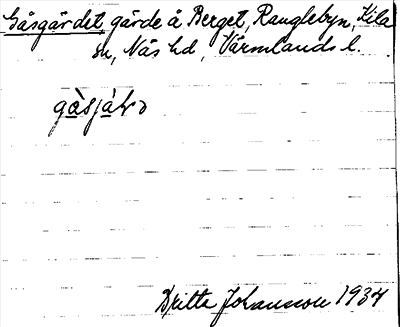 Gåsgärdet, gärde å Berget, Ranglebyn, Kila
sn, Näs hd, Värmlands l.
Britta Johansson 1934